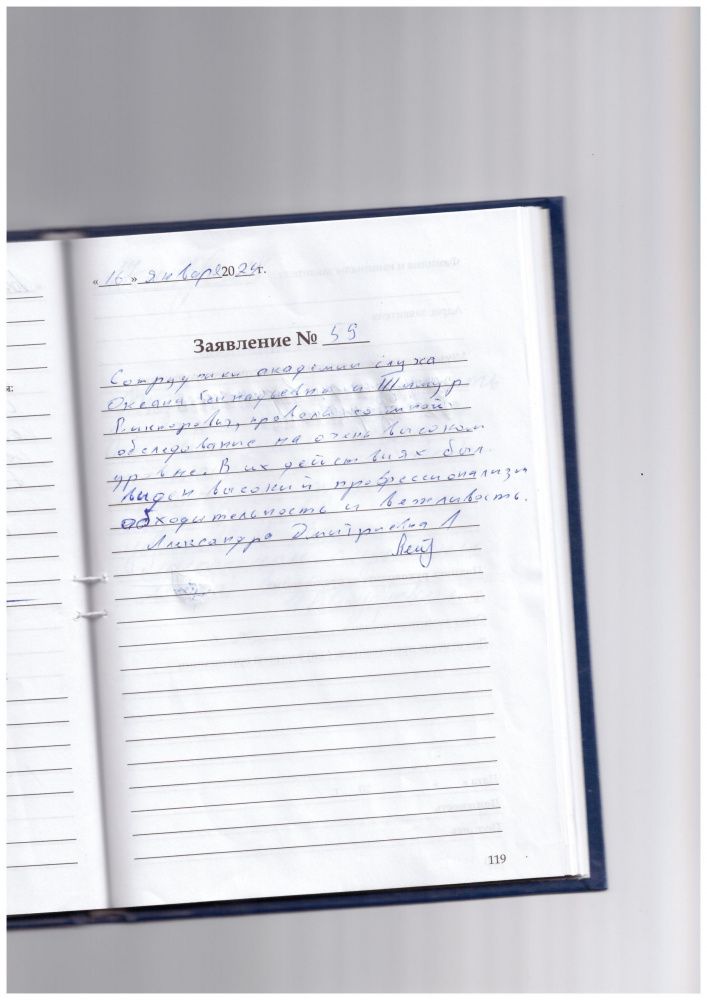 « 16 » января 2024 г.
Заявление № 59
Сотрудники академии слуха
Оксана Геннадьевна и Тимур
Викторович, провели со мной
обследование на очень высоком
уровне. В их действиях был
виден высокий профессионализм
обходительность и вежливость.
Александра Дмитриевна Л
119